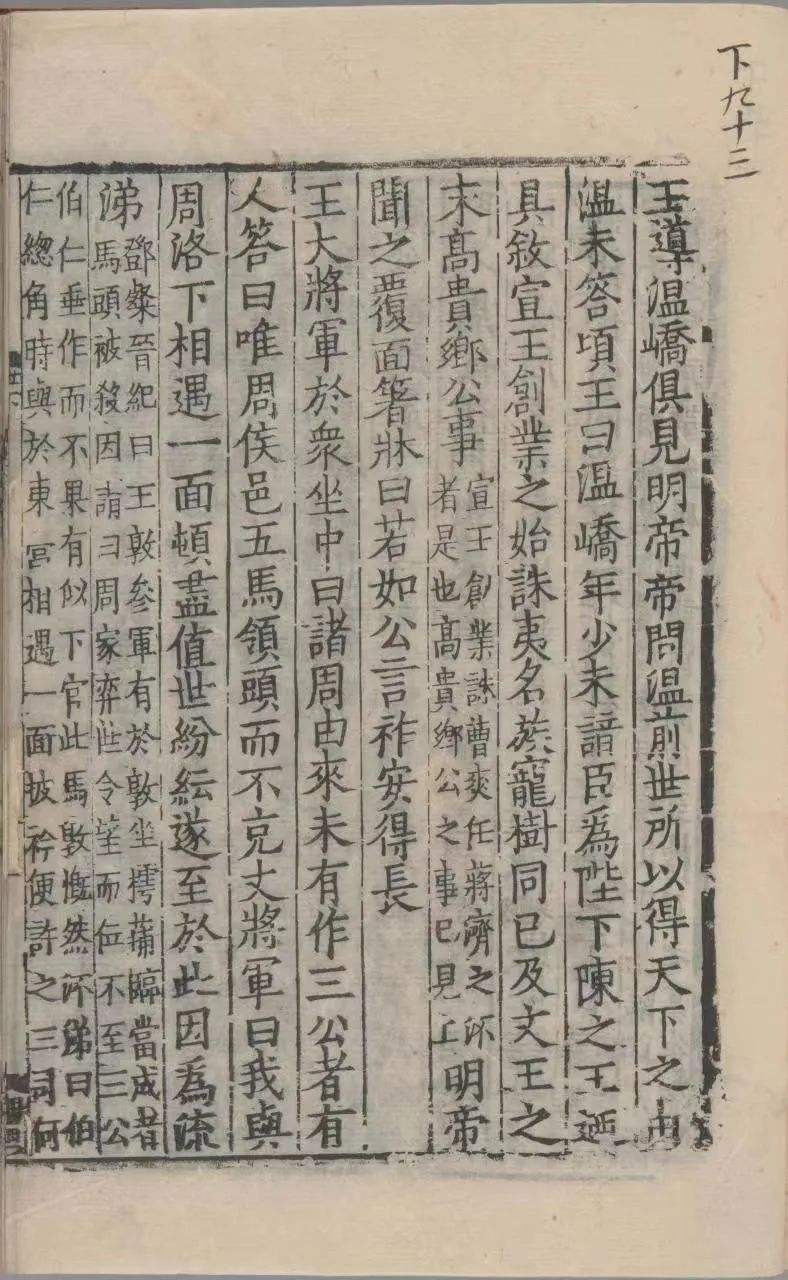 下九十三
王導温嶠俱見明帝帝問温前世所以得天下之由
温未答頃王曰温嶠年少未諳臣為陛下陳之王迺
具敘宣王創業之始誅夷名族寵樹同已及文王之
末高貴鄉公事宣王創業誅曹爽任蔣濟之流者是也高貴鄉公之事已見上明帝
聞之覆面著牀曰若如公言祚安得長
王大將軍於衆坐中曰諸周由來未有作三公者有
人答曰唯周侯邑五馬領頭而不克大將軍曰我與
周洛下相遇一面頓盡值世紛紜遂至於此因為流
涕鄧粲晉紀曰王敦參軍有於敦坐摴蒱臨當成者馬頭被殺因謂曰周家奕世令望而位不至三公
伯仁垂作而不果有似下官此馬敦慨然流涕曰伯仁總角時與於東宮相遇一面披衿便許之三司何